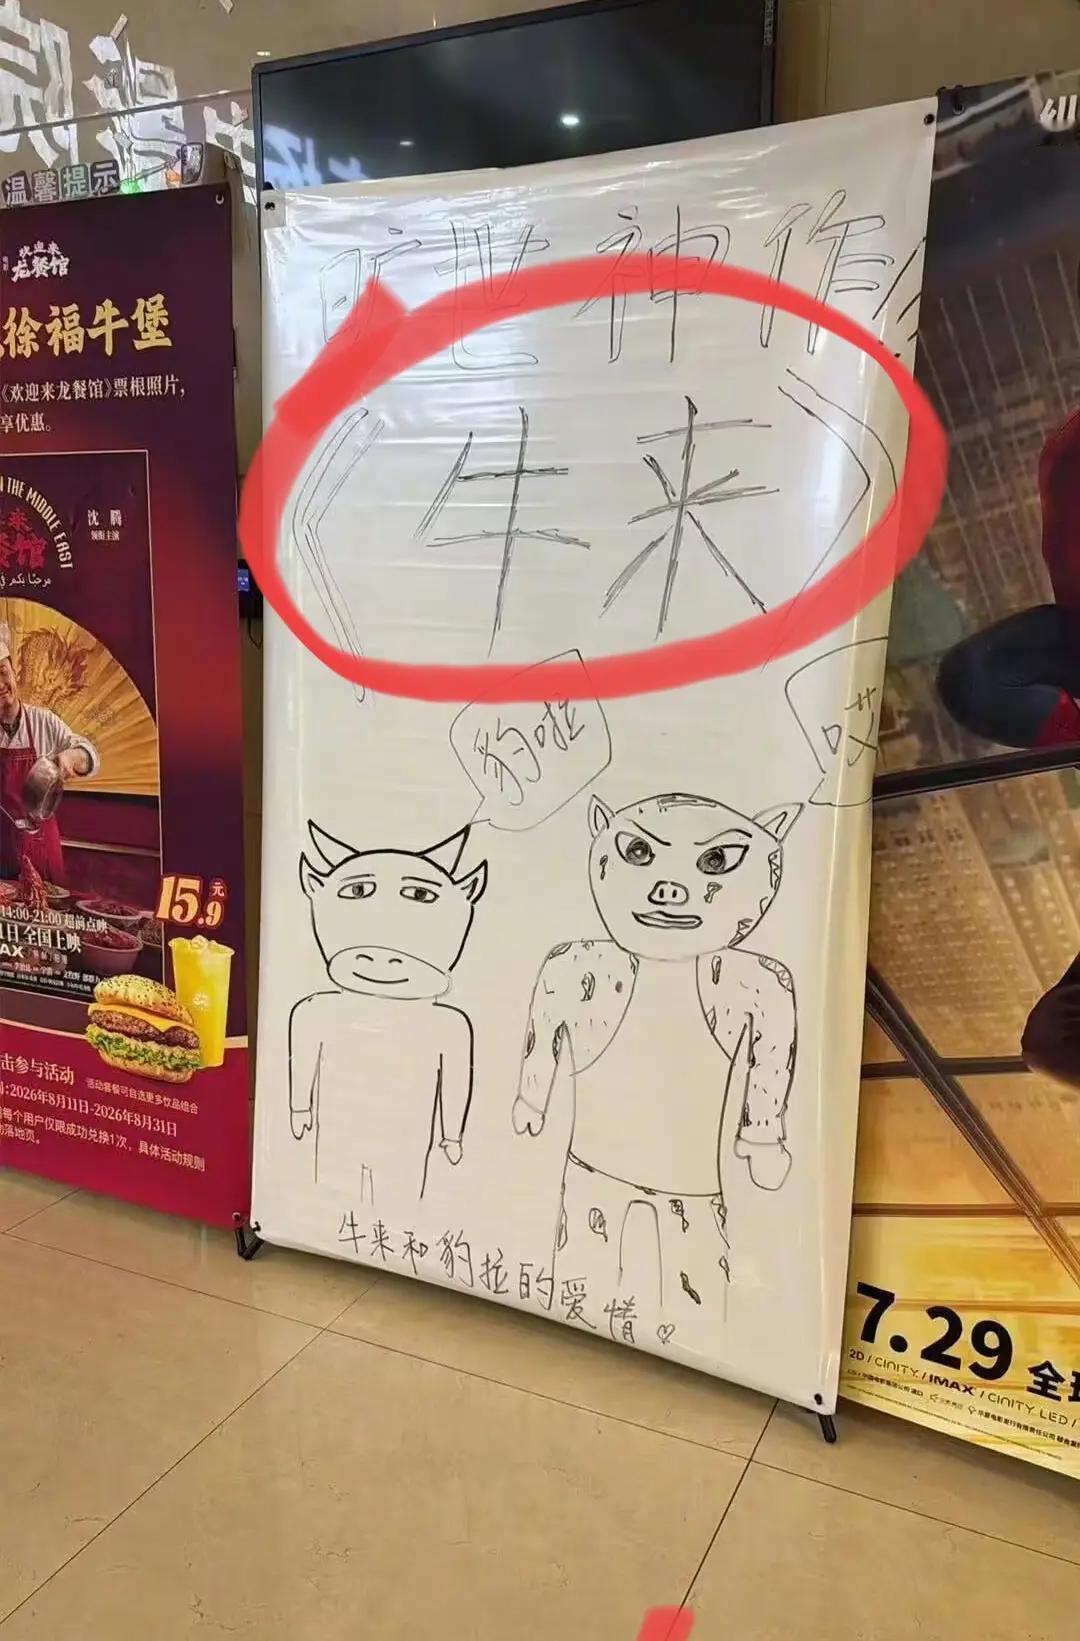 温馨提示
欢迎来
龙餐馆
徐福牛堡
《欢迎来龙餐馆》票根照片,
享优惠。
N THE MIDDLE EAST
沈腾
领衔主演
14:00-21:00 超前点映
1日 全国上映
15.9元
击参与活动
活动套餐可自选更多饮品组合
2026年8月11日-2026年8月31日
每个用户仅限成功兑换1次，具体活动规则
落地页。
旷世神作
《牛来》
豹啦
哎
牛来和豹拉的爱情♡
7.29 全球
2D / CINITY / IMAX / CINITY LED /